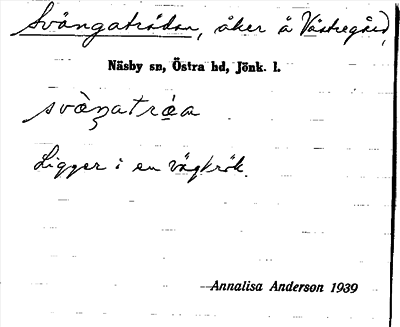 Svängatrådan, åker å Västregård,
Näsby sn, Östra hd, Jönk. l.
Ligger i en vägkrök.
Annalisa Anderson 1939